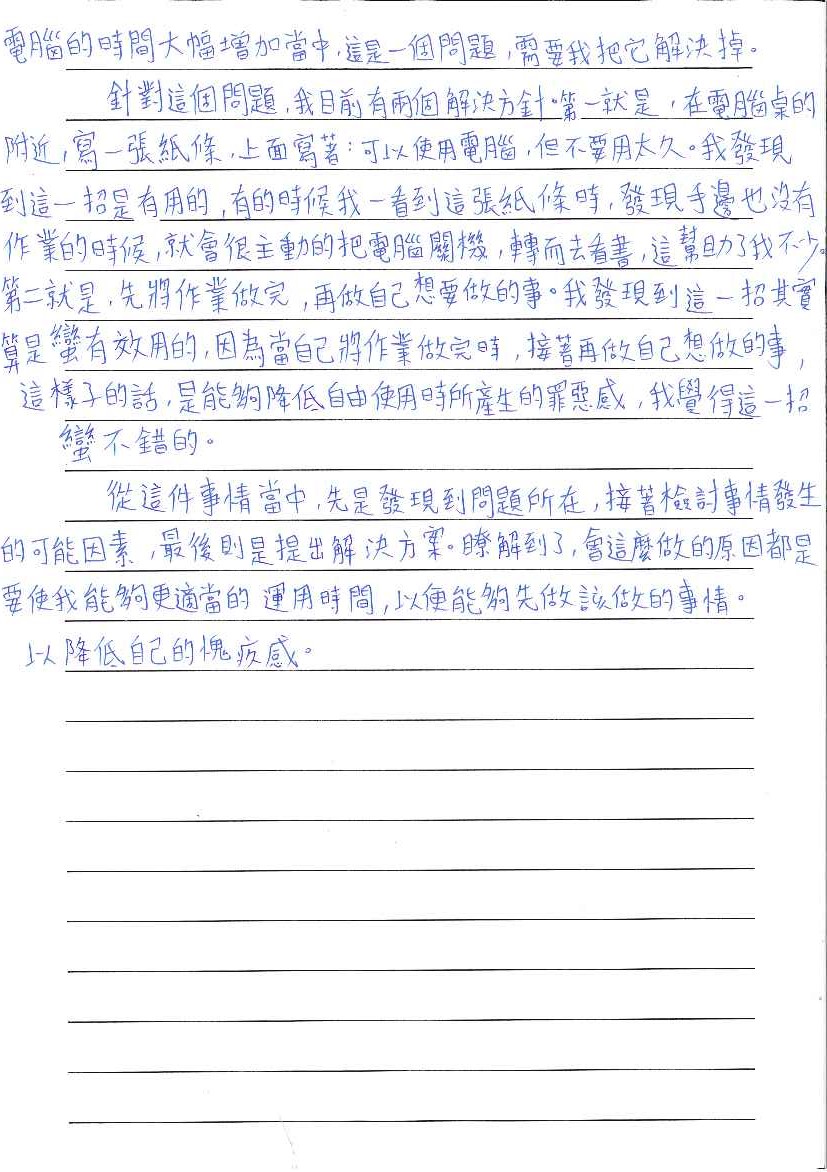 電腦的時間大幅增加當中,這是一個問題,需要我把它解決掉。
針對這個問題,我目前有兩個解決方針。第一就是,在電腦桌的
附近,寫一張紙條,上面寫著:可以使用電腦,但不要用太久。我發現
到這一招是有用的,有的時候我一看到這張紙條時,發現手邊也沒有
作業的時候,就會很主動的把電腦關機,轉而去看書,這幫助了我不少。
第二就是,先將作業做完,再做自己想要做的事。我發現到這一招其實
算是蠻有效用的,因為當自己將作業做完時,接著再做自己想做的事,
這樣子的話,是能夠降低自由使用時所產生的罪惡感,我覺得這一招
蠻不錯的。
從這件事情當中,先是發現到問題所在,接著檢討事情發生
的可能因素,最後則是提出解決方案。瞭解到了,會這麼做的原因都是
要使我能夠更適當的運用時間,以便能夠先做該做的事情。
以降低自己的愧疚感。